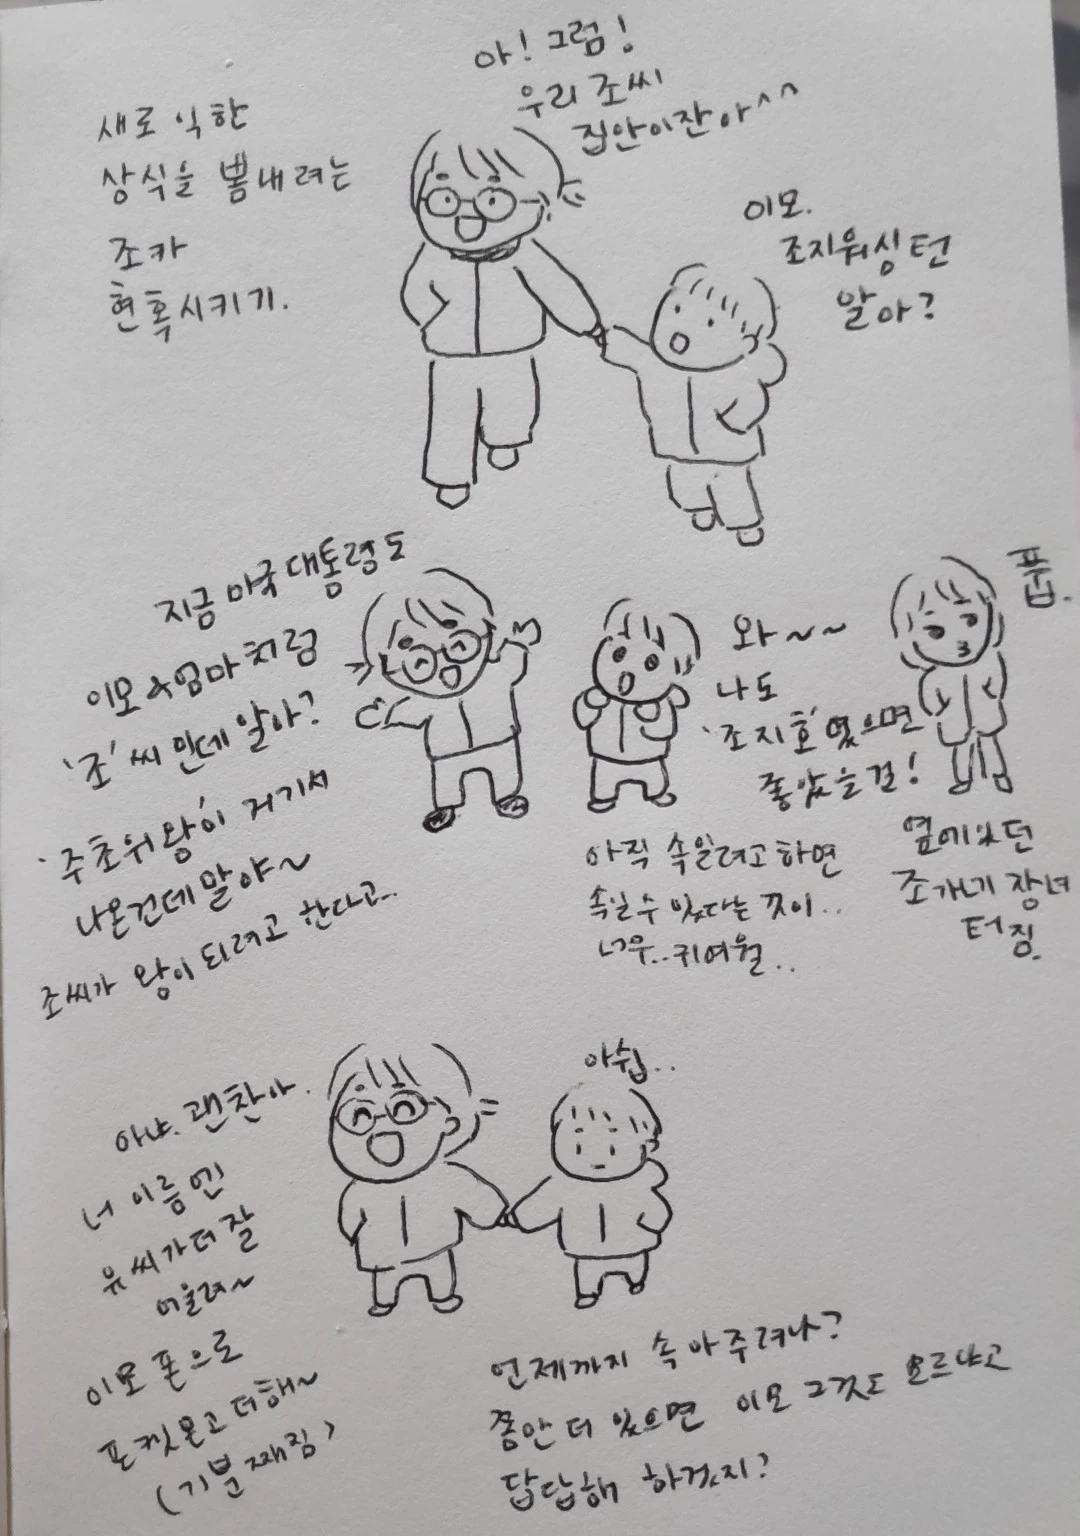 새로 익한
상식을 뽐내려는
조카
현혹시키기.
아! 그럼!
우리 조씨
집안이잖아^^
이모.
조지워싱턴
알아?
지금 미국대통령도
이모&엄마처럼
'조'씨 인데 알아?
'주초위왕'이 거기서
나온건데말야~
조씨가 왕이 되려고 한다고..
와~~
나도
'조지호'였으면
좋았을걸!
아직 속일려고하면
속일수 있다는 것이..
너무..귀여월..
풉.
옆에있던
조가네 장녀
터짐.
아냐. 괜찬아.
너 이름엔
유씨가더잘
어울려~
이모 폰으로
포켓몬고 더해~
(기분 째짐)
아쉽..
언제까지 속아주려나?
쫌만 더 있으면 이모 그것도 모르냐고
답답해 하겠지?